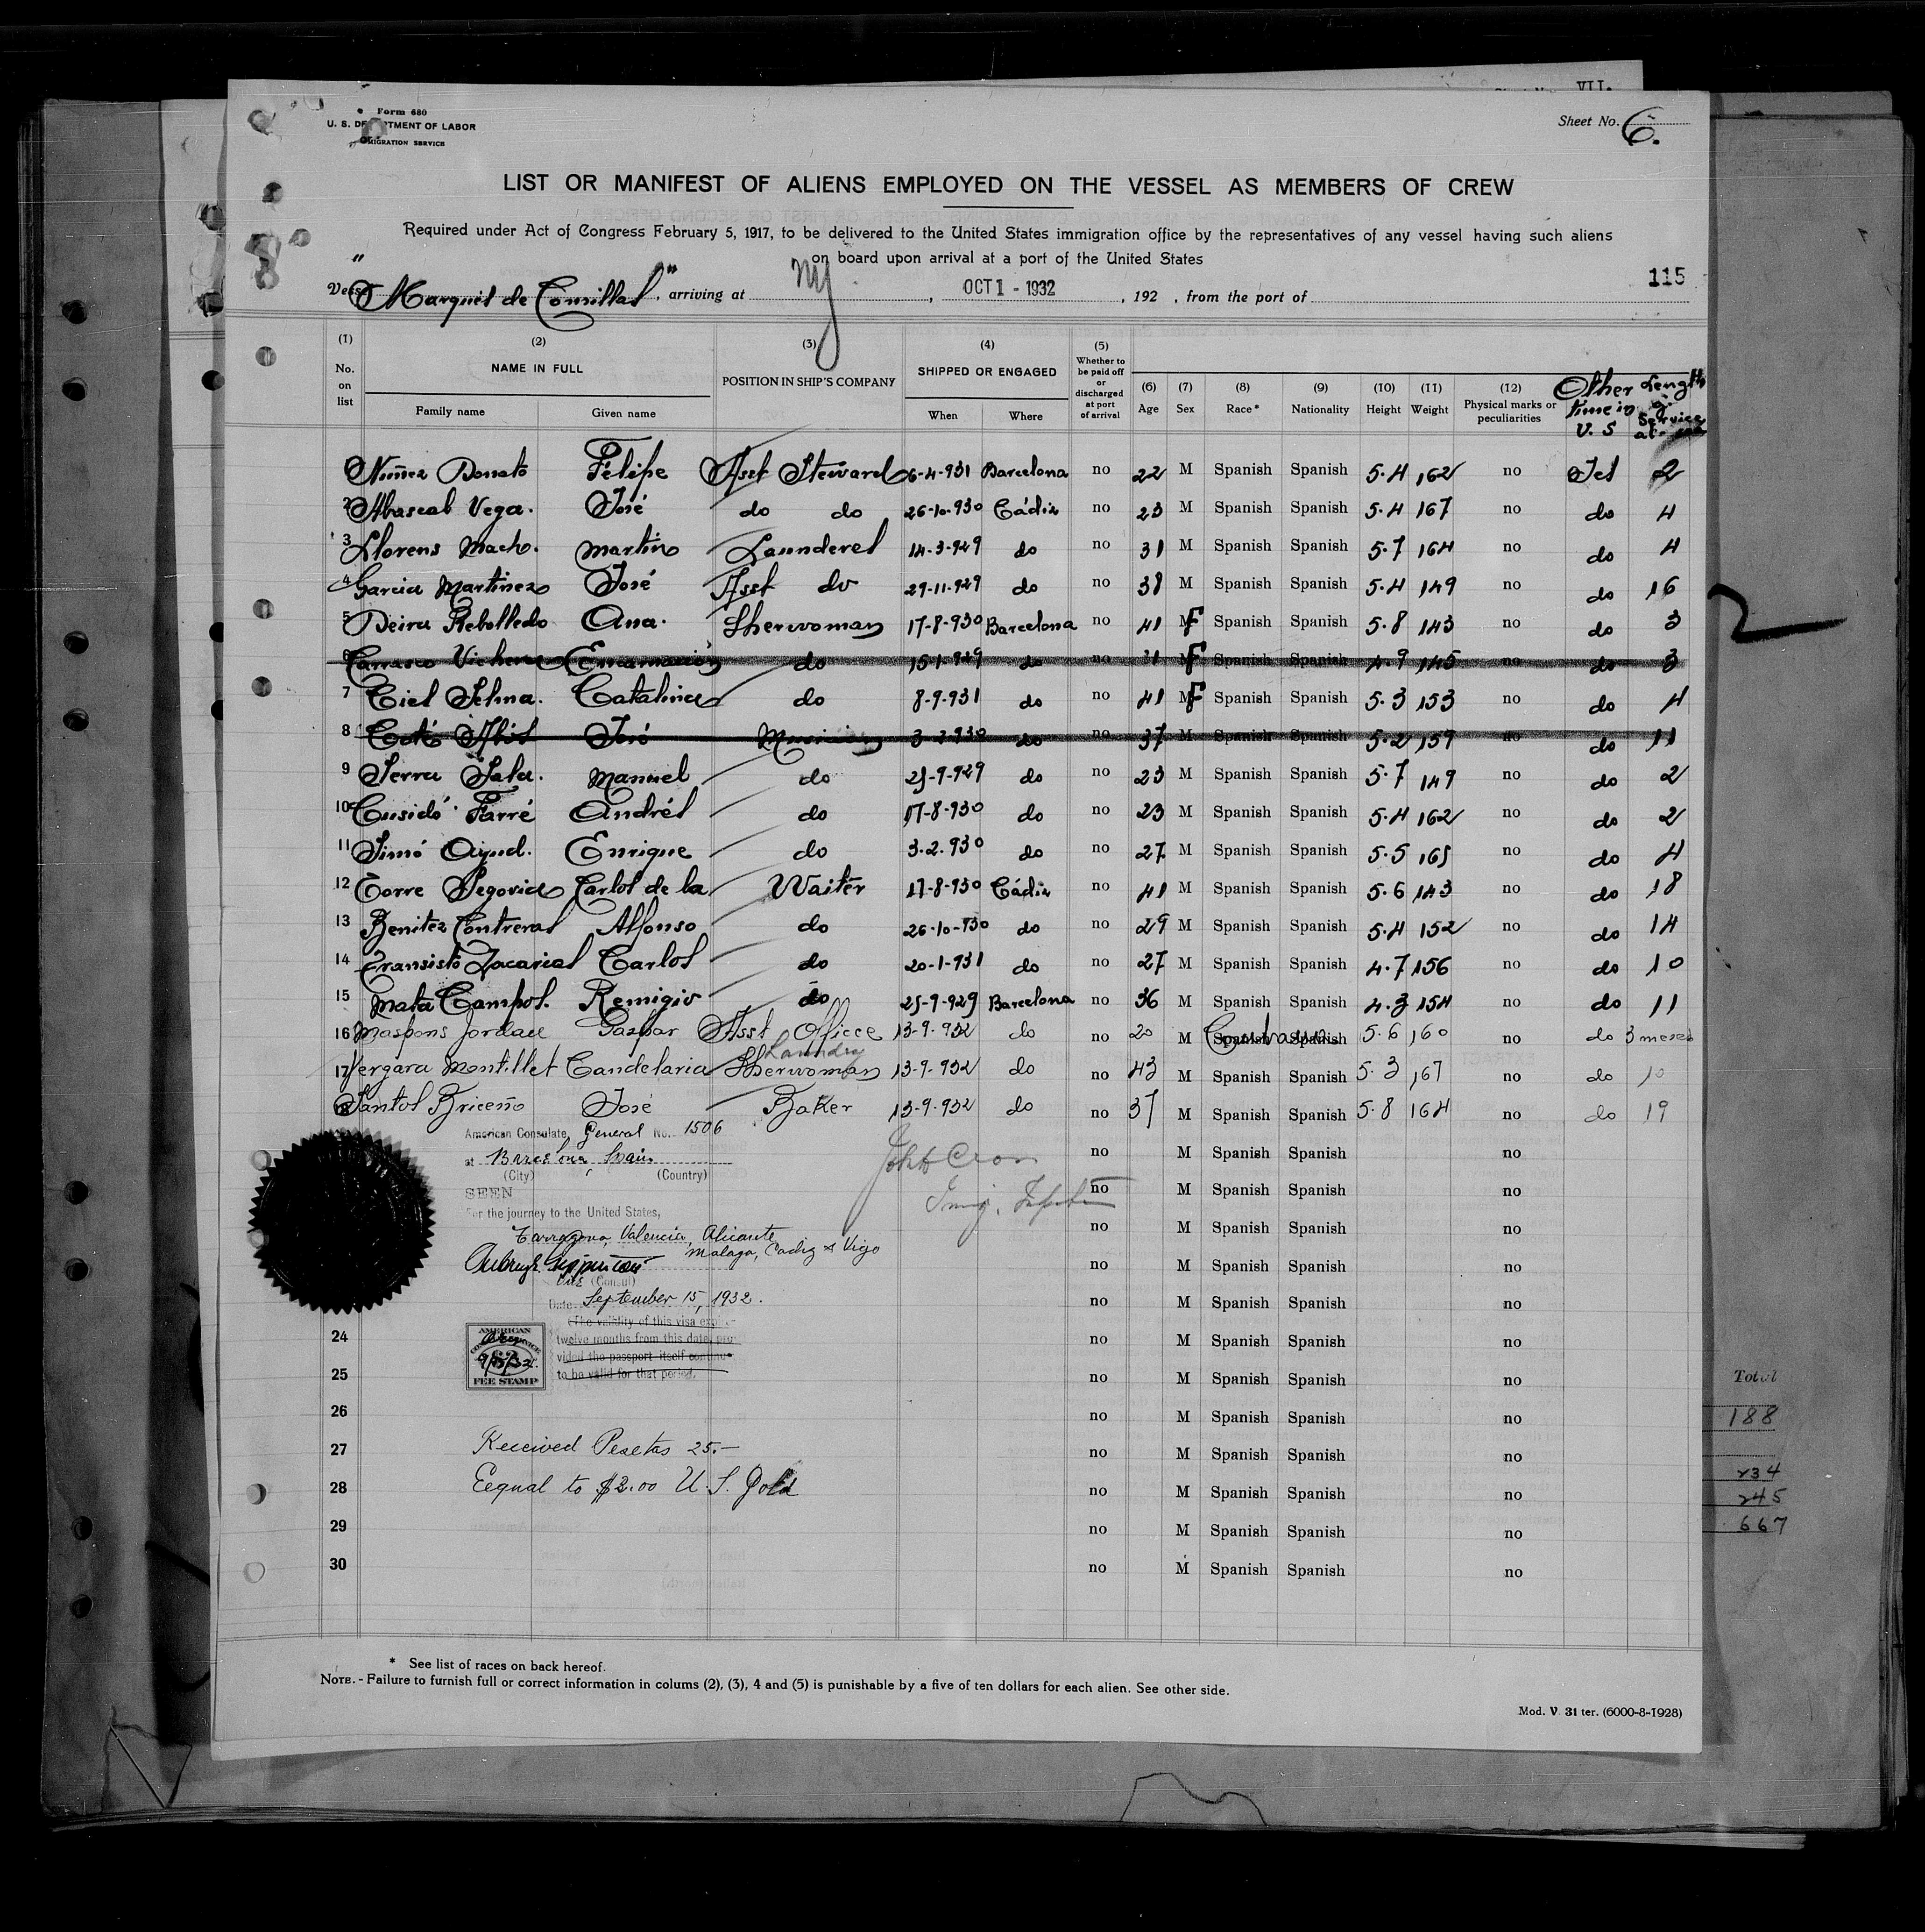 VII.
Form 680
U. S. DEPARTMENT OF LABOR
IMMIGRATION SERVICE
Sheet No. 6.
LIST OR MANIFEST OF ALIENS EMPLOYED ON THE VESSEL AS MEMBERS OF CREW
Required under Act of Congress February 5, 1917, to be delivered to the United States immigration office by the representatives of any vessel having such aliens
on board upon arrival at a port of the United States
115
Vessel "Marqués de Comillas", arriving at NY, OCT 1 - 1932, 192 , from the port of
(1) (2) (3) (4) (5)
No. on list NAME IN FULL POSITION IN SHIP'S COMPANY SHIPPED OR ENGAGED Whether to be paid off or discharged at port of arrival (6) Age (7) Sex (8) Race* (9) Nationality (10) Height (11) Weight (12) Physical marks or peculiarities Other time in U. S Length of Service at sea
Family name Given name When Where
Nuñez Donato Felipe Asst Steward 6-4-931 Barcelona no 22 M Spanish Spanish 5.4 162 no 2
2 Abascal Vega. José do do 26-10-930 Cádiz no 23 M Spanish Spanish 5.4 167 no do 4
3 Llorens Mach. Martin Launderes 14-3-929 do no 31 M Spanish Spanish 5.7 164 no do 4
4 Garcia Martinez José Asst do 29-11-929 do no 38 M Spanish Spanish 5.4 149 no do 16
5 Neira Rebolledo Ana. Sherwoman 17-8-930 Barcelona no 41 F Spanish Spanish 5.8 143 no do 3
6 Carrasco Encarnación do 15-1-929 do no 31 F Spanish Spanish 4.9 145 no do 3
7 Ciel Selma. Catalina do 8-9-931 do no 41 F Spanish Spanish 5.3 153 no do 4
8 José Musician 3-2-930 do no 37 M Spanish Spanish 5.2 159 no do 11
9 Serra Sala. Manuel do 25-9-929 do no 23 M Spanish Spanish 5.7 149 no do 2
10 Cusidó Farré Andrés do 17-8-930 do no 23 M Spanish Spanish 5.4 162 no do 2
11 Simó Enrique do 3.2.930 do no 27 M Spanish Spanish 5.5 165 no do 4
12 Torre Segovia Carlos de la Waiter 17-8-930 Cádiz no 41 M Spanish Spanish 5.6 143 no do 18
13 Benitez Contreras Alfonso do 26-10-930 do no 29 M Spanish Spanish 5.4 152 no do 14
14 Fransisto Zacarias Carlos do 20-1-931 do no 27 M Spanish Spanish 4.7 156 no do 10
15 Mata Campos. Remigio do 25-9-929 Barcelona no 36 M Spanish Spanish 4.3 154 no do 11
16 Maspons Jordan Gaspar Asst Office 13-9-932 do no 20 M Spanish Spanish 5.6 160 no do 3 meses
Laundry
17 Vergara Montillet Candelaria Sherwoman 13-9-932 do no 43 M Spanish Spanish 5.3 167 no do 10
18 Santos Briceño José Baker 13-9-932 do no 37 M Spanish Spanish 5.8 164 no do 19
American Consulate General No. 1506
at Barcelona Spain no M Spanish Spanish no
(City) (Country)
SEEN no M Spanish Spanish no
For the journey to the United States,
Tarragona, Valencia, Alicante no M Spanish Spanish no
Malaga, Cadiz & Vigo
no M Spanish Spanish no
Vice (Consul)
Date September 15, 1932. no M Spanish Spanish no
(The validity of this visa expires
24 AMERICAN twelve months from this date, pro- no M Spanish Spanish no
9/15/32. vided the passport itself continues
25 FEE STAMP to be valid for that period. no M Spanish Spanish no
26 no M Spanish Spanish no
27 Received Pesetas 25.- no M Spanish Spanish no
28 Eequal to $2.00 U.S. Gold no M Spanish Spanish no
29 no M Spanish Spanish no
30 no M Spanish Spanish no
Total
188
234
245
667
* See list of races on back hereof.
NOTE. - Failure to furnish full or correct information in colums (2), (3), 4 and (5) is punishable by a five of ten dollars for each alien. See other side.
Mod. V 31 ter. (6000-8-1928)